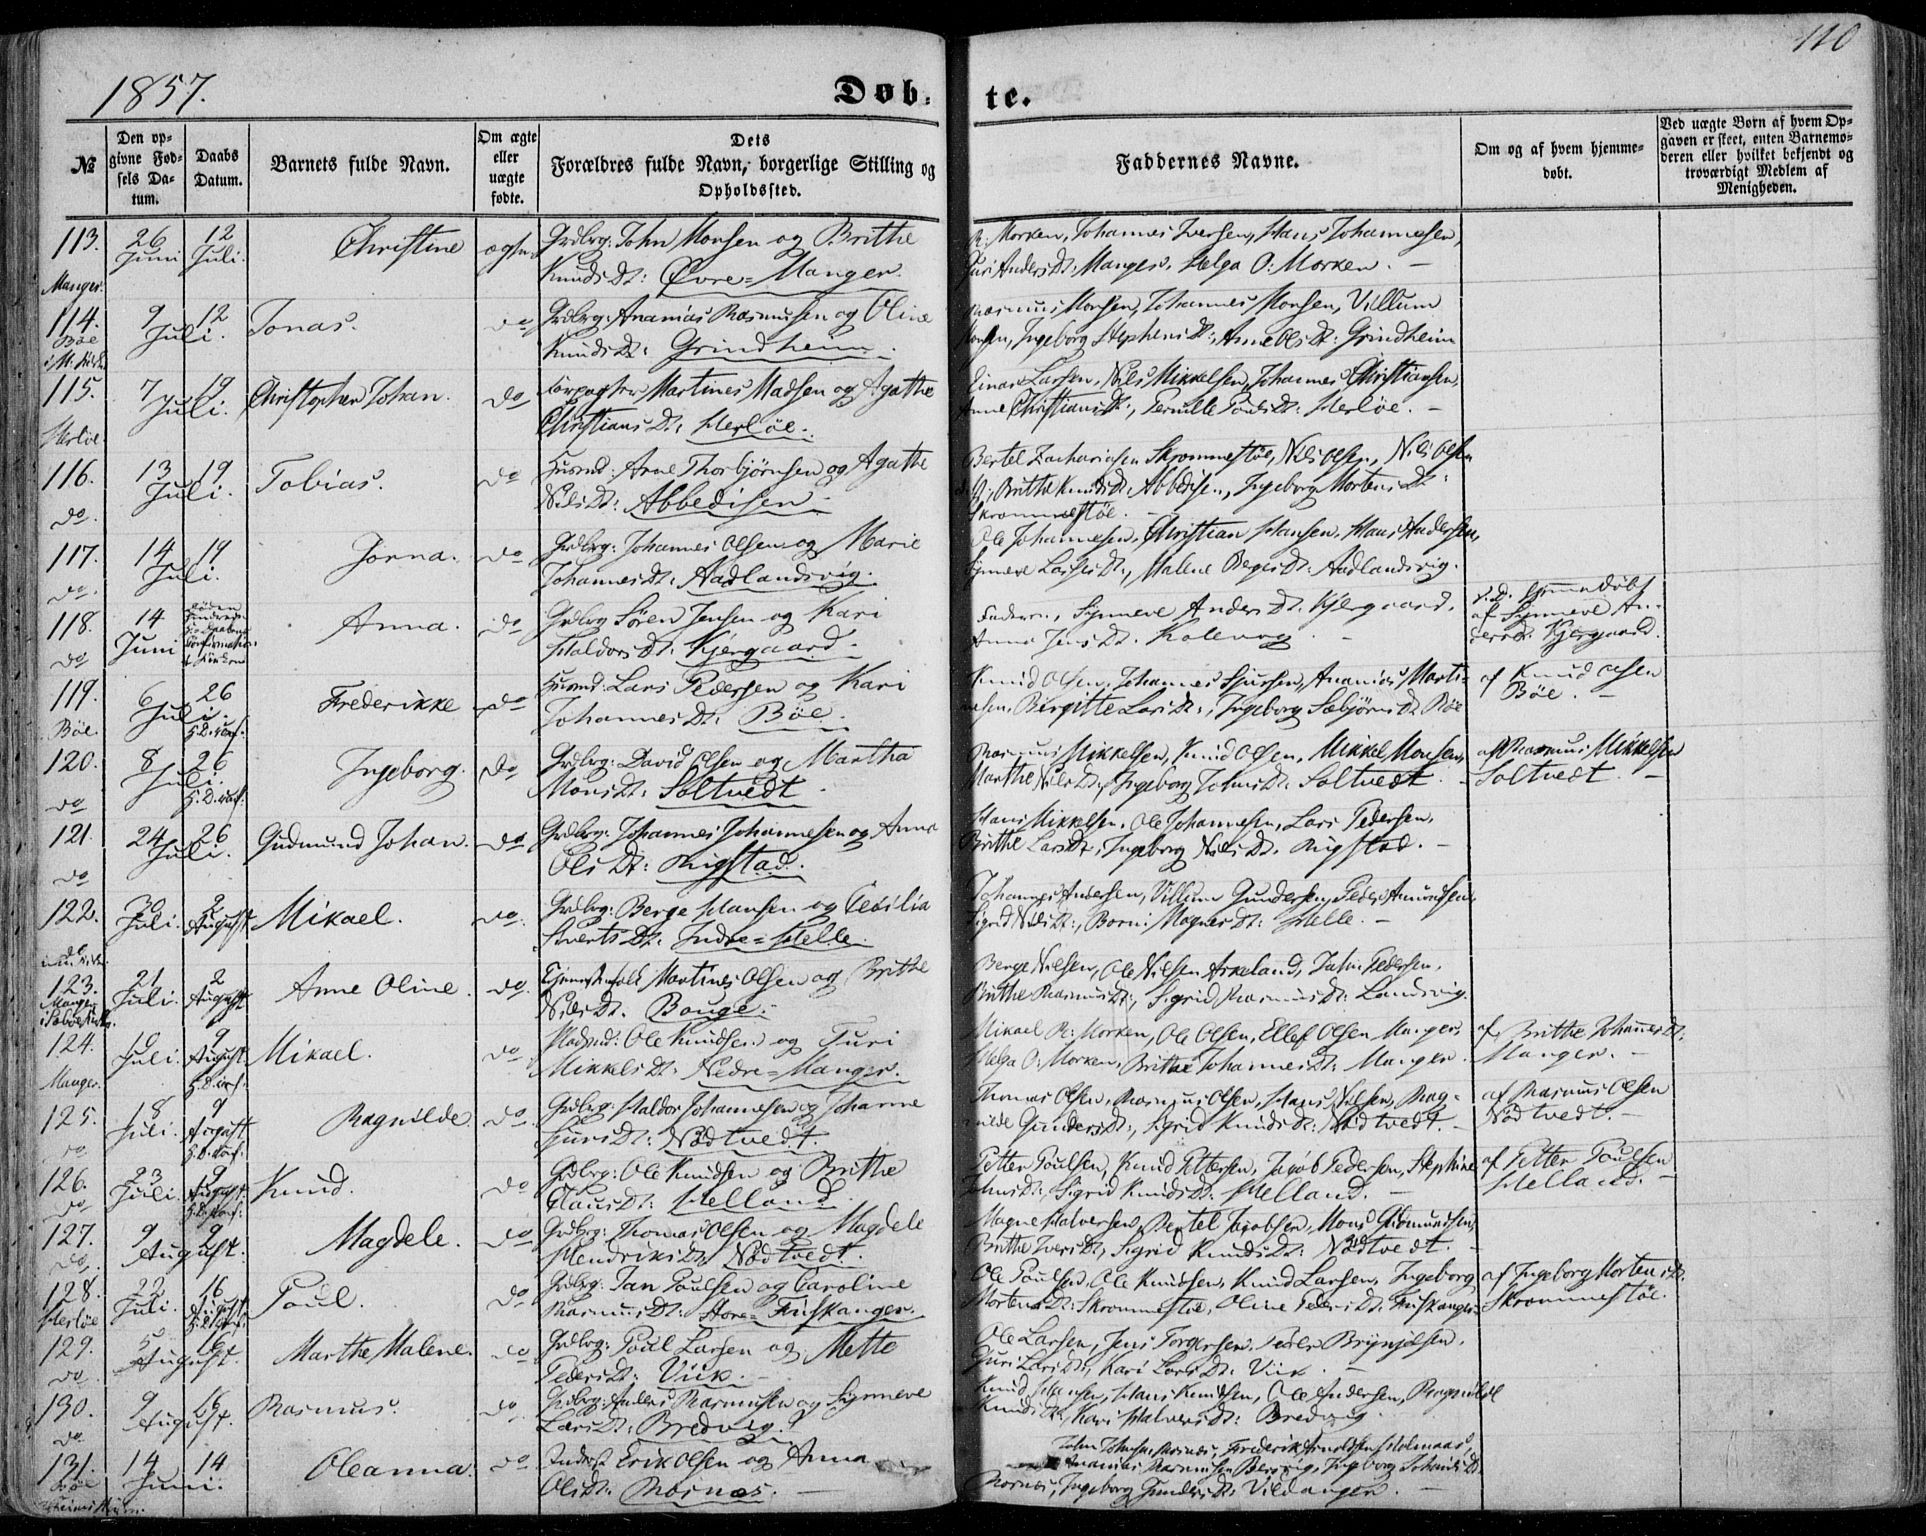 1857.
Døb-
te.
110
№
Den op-
givne Fød-
sels Da-
tum.
Daabs
Datum.
Barnets fulde Navn.
Om ægte
eller
uægte
fødte.
Dets
Forældres fulde Navn, borgerlige Stilling og
Opholdssted.
Faddernes Navne.
Om og af hvem hjemme-
døbt.
Ved uægte Børn af hvem Op-
gaven er skeet, enten Barnemo-
deren eller hvilket bekjendt og
troværdigt Medlem af
Menigheden.
113. 26 Juni 12 Juli. Christine Grdbrg: John Monsen og Brithe
Manger. Knuds Dt: Øvre=Manger.
R: Morken, Johannes Iversen, Hans Johannesen,
Guri Anders Dt: Manger, Helga O: Morken. —
114. 9 12 Juli. Jonas. do Grdbrg: Ananias Rasmusen og Oline
Bøe Knuds Dt: Grindheim.
Rasmus Monsen, Johannes Monsen, Villum
Ingeborg Stephens Dt:, Anne Ols Dt: Grindheim
115. 7 19 Juli. Christopher Johan. do Martines Madsen og Agathe
Herløe. Christians Dt: Herløe.
Einar Larsen, Nils Mikkelsen, Johannes Christiansen,
Anne Christians Dt:, Pernille Pouls Dt: Herløe. —
116. 13 19 Juli. Tobias. do Husmd: Arne Thorbjørnsen og Agathe
do. Nils Dt: Abbedisen.
Bertel Zachariasen Skrommestøe, Nils Olsen, Nils Olsen
Brithe Knuds Dt: Abbedisen, Ingeborg Mortens Dt:
Skrommestøe. —
117. 14 19 Juli. Jorna. do Grdbrg: Johannes Olsen og Marie
do. Johannes Dt: Aadlandsvig.
Ole Johannesen, Christian Hansen, Hans Andersen,
Synneve Lasses Dt:, Malene Berges Dt: Aadlandsvig.
118. 14 Juni Anna. do Grdbrg Søren Jensen og Kari
do Haldors Dt: Kjergaard.
Faderen, Synneve Anders Dt. Kjergaard,
Anna Jens Dt: Kollevog. —
Hjemmedøbt
af Synneve An-
dersd. Kjergaard.
119. 6 26 Juli. Frederikke do Husmd: Lars Pedersen og Kari
Bøe. Johannes Dt: Bøe.
Knud Olsen, Johannes Sjursen, Ananias Marti-
nesen, Birgitte Lars Dt:, Ingeborg Sæbjørns Dt Bøe
af Knud Olsen
Bøe. —
120. 8 26 Juli. Ingeborg. do Grdbrg: David Olsen og Martha
do Mons Dt: Soltvedt.
Rasmus Mikkelsen, Knud Olsen, Mikkel Monsen,
Marthe Nils Dt:, Ingeborg Johns Dt: Soltvedt. —
af Rasmus Mikkelsen
Soltvedt. —
121. 24 26 Juli. Gudmund Johan. do Grdbrg: Johannes Johannesen og Anna
do Ols Dt: Rigstad.
Hans Mikkelsen, Ole Johannesen, Lars Pedersen,
Brithe Lars Dt:, Ingeborg Nils Dt. Rigstad. —
122. 30 Juli. 2 August Mikael. do. Grdbrg: Berge Hansen og Cecilia
Siverts Dt: Indre=Helle.
Johannes Andersen, Villum Gundersen, Peder Amundsen,
Sigrid Nils Dt:, Borni Magnes Dt: Helle. —
123. 21 Juli. 2 August Anne Oline. do. Tjenestefolk Martines Olsen og Brithe
Manger Nils Dt. Bouge.
Berge Nilsen, Ole Nilsen Askeland, John Pedersen,
Brithe Rasmus Dt:, Sigrid Rasmus Dt: Landsvig.
124. Juli. 9 August Mikael. do. Ole Knudsen og Turi
Manger. Mikkels Dt: Nedre=Manger.
Mikael R: Morken, Ole Olsen, Ellef Olsen Manger,
Helga O: Morken, Brithe Johannes Dt: Manger.
af Brithe Johannes Dt:
Manger. —
125. 18 Juli. 9 August Ragnilde do. Grdbrg: Haldor Johannesen og Johanne
do Sjurs Dt: Nødtvedt.
Thomas Olsen, Rasmus Olsen, Hans Nilsen, Rag-
nilde Gunders Dt:, Sigrid Knuds Dt: Nødtvedt. —
af Rasmus Olsen
Nødtvedt. —
126. 23 Juli. 9 August Knud. do Grdbrg: Ole Knudsen og Brithe
do Claus Dt: Helland.
Petter Poulsen, Knud Pettersen, Jacob Pedersen, Stephine
Johns Dt:, Sigrid Knuds Dt: Helland. —
af Petter Poulsen
Helland. —
127. 9 9 August. Magdele. do Grdbrg: Thomas Olsen og Magdele
do. Hendriks Dt: Nødtvedt.
Magne Halversen, Bertel Jacobsen, Mons Gudmundsen,
Brithe Ivers Dt, Sigrid Knuds Dt: Nødtvedt. —
128. 22 Juli. 16 August Poul. do Grdbrg: Jan Poulsen og Caroline
Herløe Rasmus Dt: Store=Friskanger.
Ole Poulsen, Ole Knudsen, Knud Larsen, Ingeborg
Mortens Dt: Skrommestøe, Oline Peders Dt: Friskanger
af Ingeborg Mortens Dt:
Skrommestøe.
129. 5 16 August. Marthe Malene. do Grdbrg: Poul Larsen og Mette
do Peders Dt: Viik.
Ole Larsen, Jens Torgersen, Peder Brynjolsen,
Guri Lars Dt:, Kari Lars Dt: Viik —
130. 9 16 August. Rasmus. do. Grdbrg: Anders Rasmusen og Synneve
do Lars Dt: Bredvig.
Knud Hansen, Hans Knudsen, Ole Andersen, Ragnilde
Knuds Dt:, Kari Halvers Dt: Bredvig.
131. 14 14 Juni. Oleanna. do Inderst Erik Olsen og Anna
Bøe Ols Dt: Rosnæs. —
John Johnsen Rosnæs, Frederik Arnoldsen Holmaas,
Ananias Rasmusen Bersvig, Ingeborg Johannes Dt:
Rosnæs, Ingeborg Gunders Dt: Vildanger. —